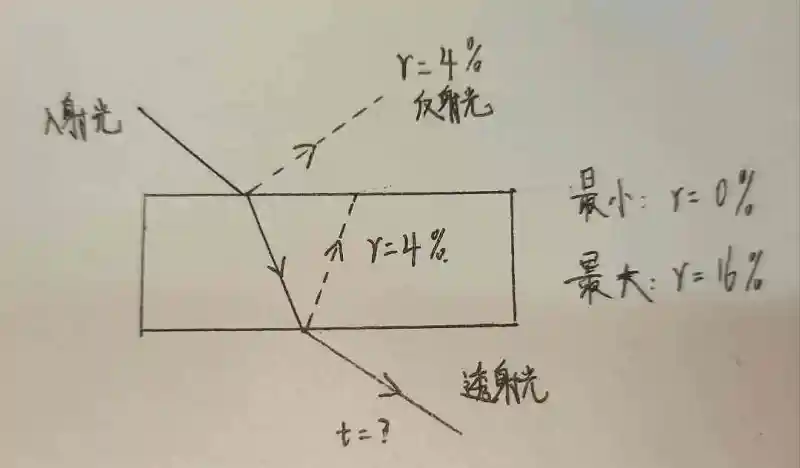 r=4%
反射光
入射光
r=4%.
最小: r=0%
最大: r=16%
透射光
t=?